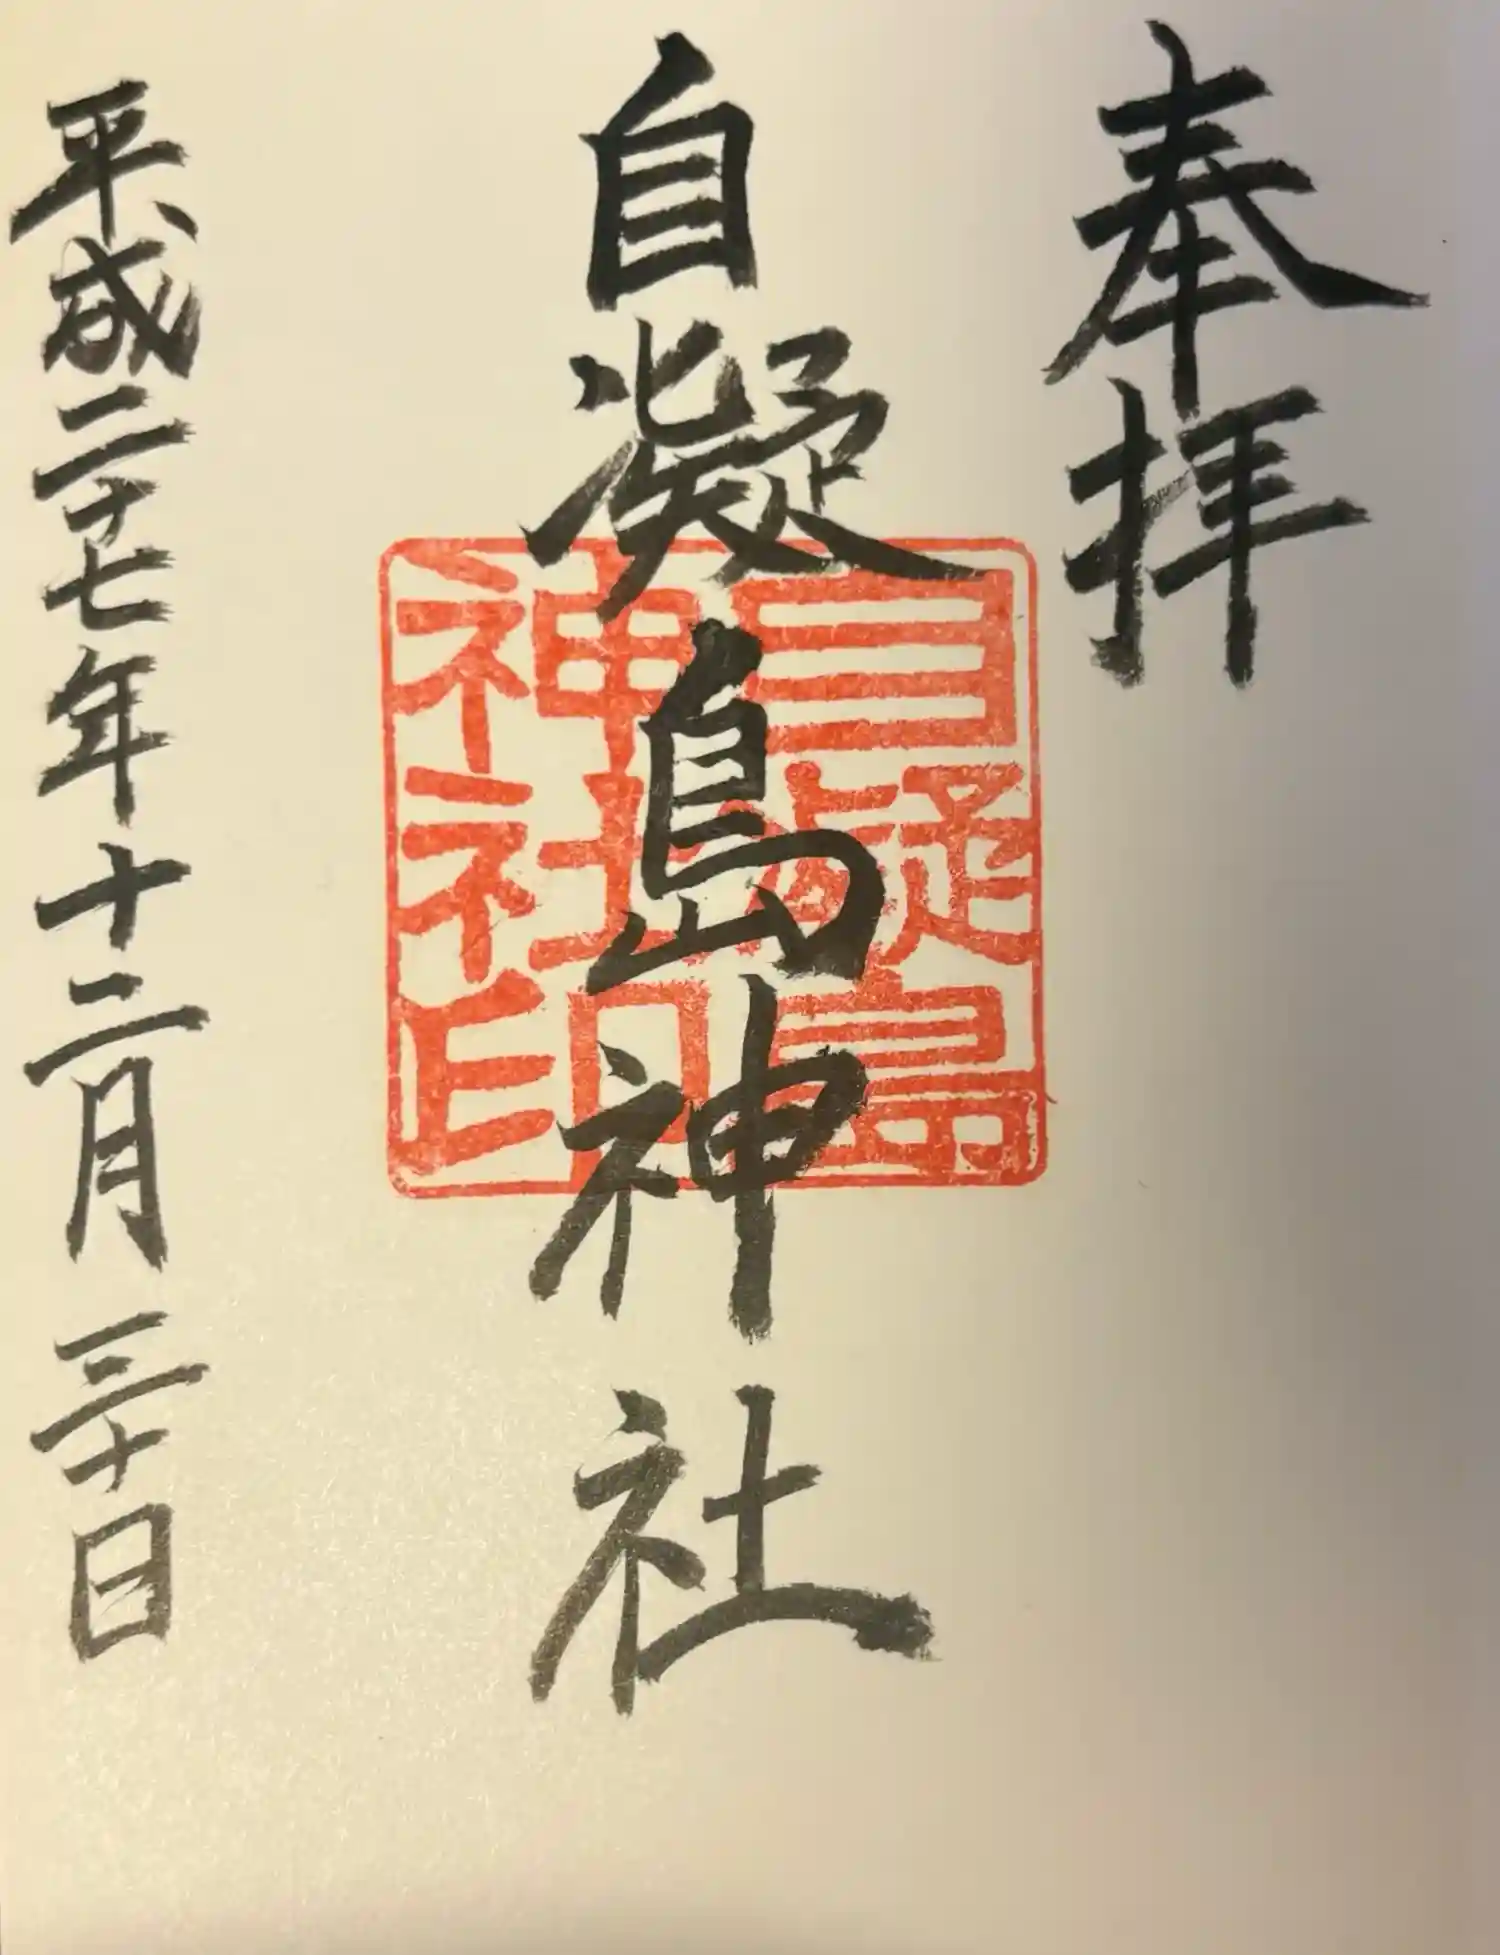 奉拝
自凝島神社
自凝島
神社印
平成二十七年十二月三十日